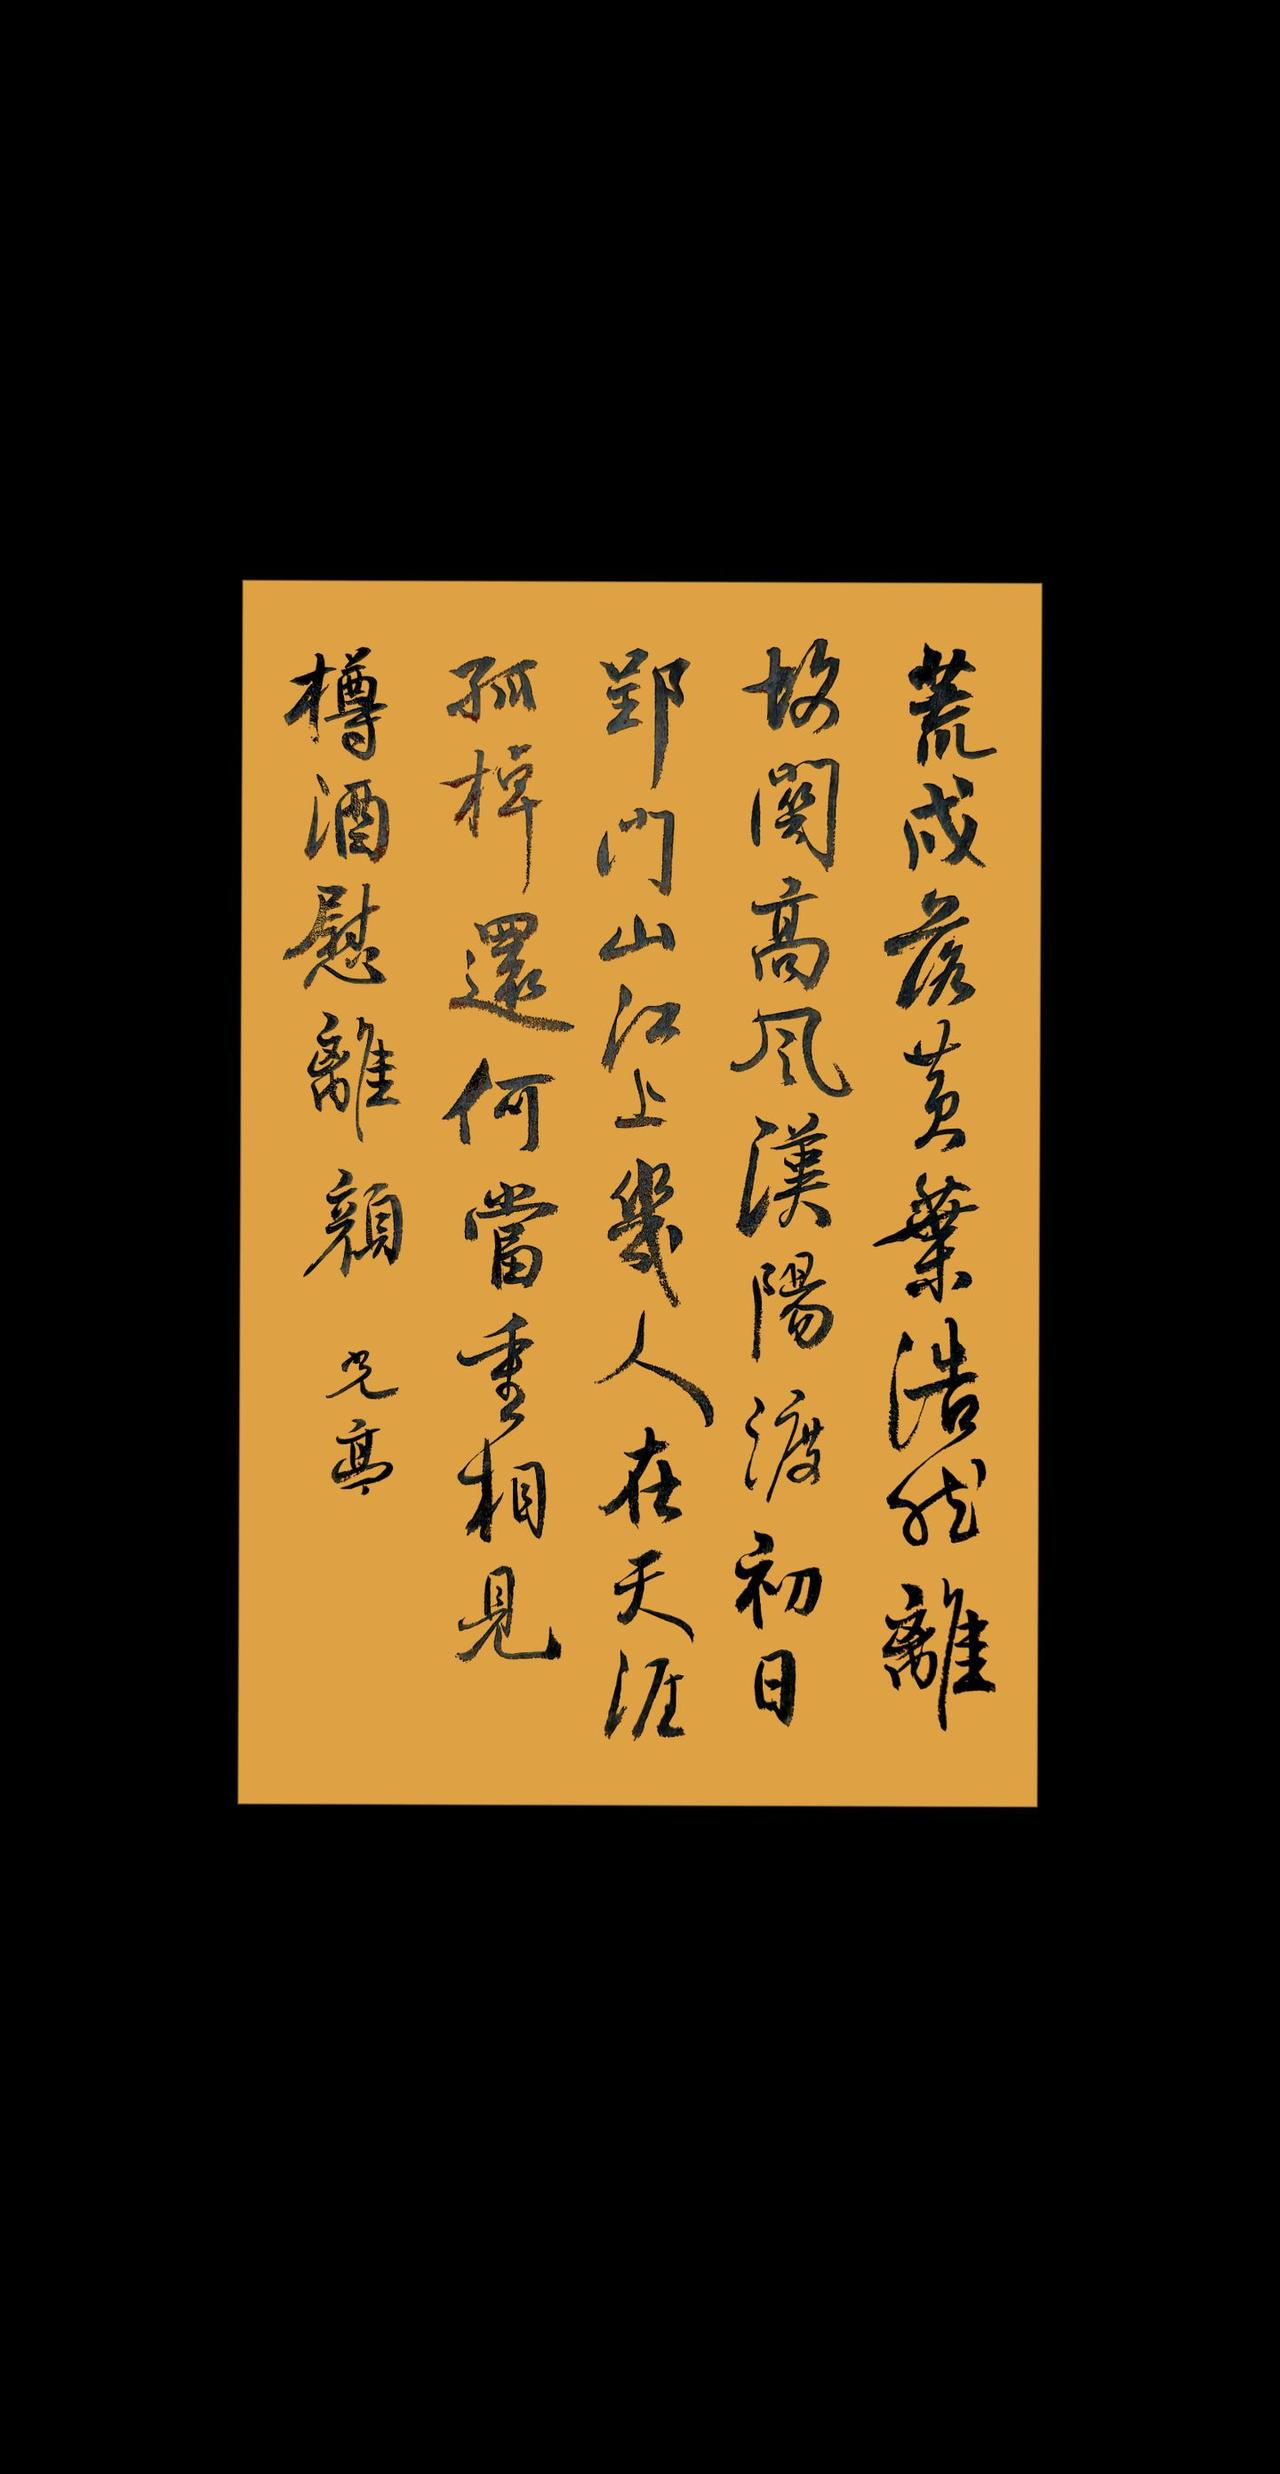 荒戍落黄葉浩然離
故關高風漢陽渡初日
郢門山江上幾人在天涯
孤棹還何當重相見
樽酒慰離顔
光亭